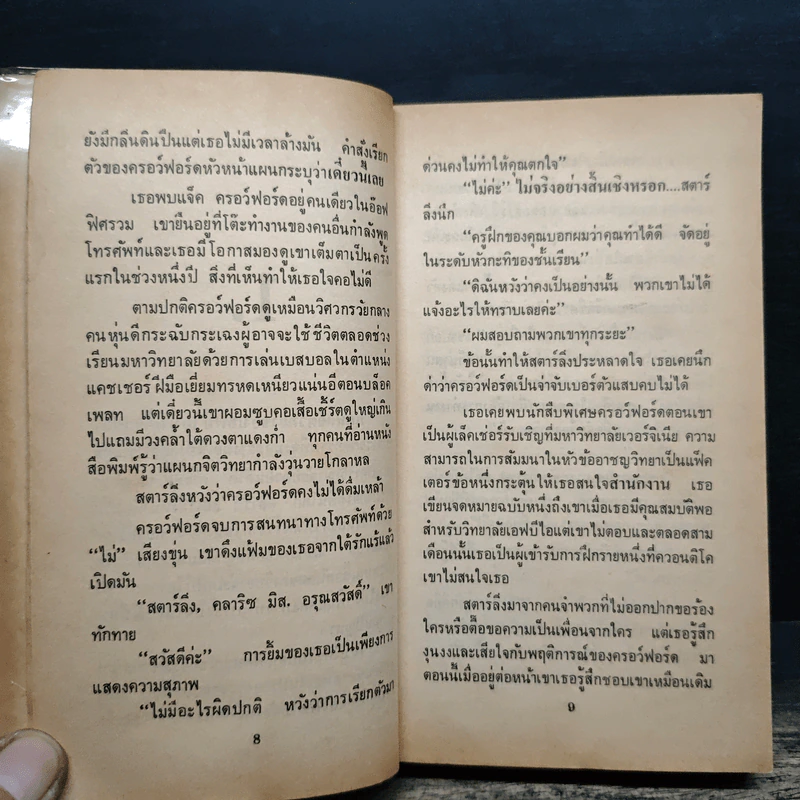 ยังมีกลิ่นดินปืนแต่เธอไม่มีเวลาล้างมัน คำสั่งเรียก
ตัวของครอว์ฟอร์ดหัวหน้าแผนกระบุว่าเดี๋ยวนี้เลย
เธอพบแจ็ค ครอว์ฟอร์ดอยู่คนเดียวในอ๊อฟ
ฟิศรวม เขายืนอยู่ที่โต๊ะทำงานของคนอื่นกำลังพูด
โทรศัพท์และเธอมีโอกาสมองดูเขาเต็มตาเป็นครั้ง
แรกในช่วงหนึ่งปี สิ่งที่เห็นทำให้เธอใจคอไม่ดี
ตามปกติครอว์ฟอร์ดดูเหมือนวิศวกรวัยกลาง
คนหุ่นดีกระฉับกระเฉงผู้อาจจะใช้ชีวิตตลอดช่วง
เรียนมหาวิทยาลัยด้วยการเล่นเบสบอลในตำแหน่ง
แคชเชอร์ฝีมือเยี่ยมทรหดเหนียวแน่นอีตอนบล็อค
เพลท แต่เดี๋ยวนี้เขาผอมซูบคอเสื้อเชิ้ร์ตดูใหญ่เกิน
ไปแถมมีวงคล้ำใต้ดวงตาแดงก่ำ ทุกคนที่อ่านหนัง
สือพิมพ์รู้ว่าแผนกจิตวิทยากำลังวุ่นวายโกลาหล
สตาร์ลิ่งหวังว่าครอว์ฟอร์ดคงไม่ได้ดื่มเหล้า
ครอว์ฟอร์ดจบการสนทนาทางโทรศัพท์ด้วย
“ไม่” เสียงขุ่น เขาดึงแฟ้มของเธอจากใต้รักแร้แล้ว
เปิดมัน
“สตาร์ลิ่ง, คลาริซ มิส. อรุณสวัสดิ์” เขา
ทักทาย
“สวัสดีค่ะ” การยิ้มของเธอเป็นเพียงการ
แสดงความสุภาพ
“ไม่มีอะไรผิดปกติ หวังว่าการเรียกตัวมา
8
ด่วนคงไม่ทำให้คุณตกใจ”
“ไม่ค่ะ” ไม่จริงอย่างสิ้นเชิงหรอก....สตาร์
ลิ่งนึก
“ครูฝึกของคุณบอกผมว่าคุณทำได้ดี จัดอยู่
ในระดับหัวกะทิของชั้นเรียน”
“ดิฉันหวังว่าคงเป็นอย่างนั้น พวกเขาไม่ได้
แจ้งอะไรให้ทราบเลยค่ะ”
“ผมสอบถามพวกเขาทุกระยะ”
ข้อนั้นทำให้สตาร์ลิ่งประหลาดใจ เธอเคยนึก
ด่าว่าครอว์ฟอร์ดเป็นจ่าจับเบอร์ตัวแสบคบไม่ได้
เธอเคยพบนักสืบพิเศษครอว์ฟอร์ดตอนเขา
เป็นผู้เล็คเช่อร์รับเชิญที่มหาวิทยาลัยเวอร์จิเนีย ความ
สามารถในการสัมมนาในหัวข้ออาชญวิทยาเป็นแฟ็ค
เตอร์ข้อหนึ่งกระตุ้นให้เธอสนใจสำนักงาน เธอ
เขียนจดหมายฉบับหนึ่งถึงเขาเมื่อเธอมีคุณสมบัติพอ
สำหรับวิทยาลัยเอฟบีไอแต่เขาไม่ตอบและตลอดสาม
เดือนนั้นเธอเป็นผู้เข้ารับการฝึกรายหนึ่งที่ควอนติโค
เขาไม่สนใจเธอ
สตาร์ลิ่งมาจากคนจำพวกที่ไม่ออกปากขอร้อง
ใครหรือตื๊อขอความเป็นเพื่อนจากใคร แต่เธอรู้สึก
งุนงงและเสียใจกับพฤติการณ์ของครอว์ฟอร์ด มา
ตอนนี้เมื่ออยู่ต่อหน้าเขาเธอรู้สึกชอบเขาเหมือนเดิม
9